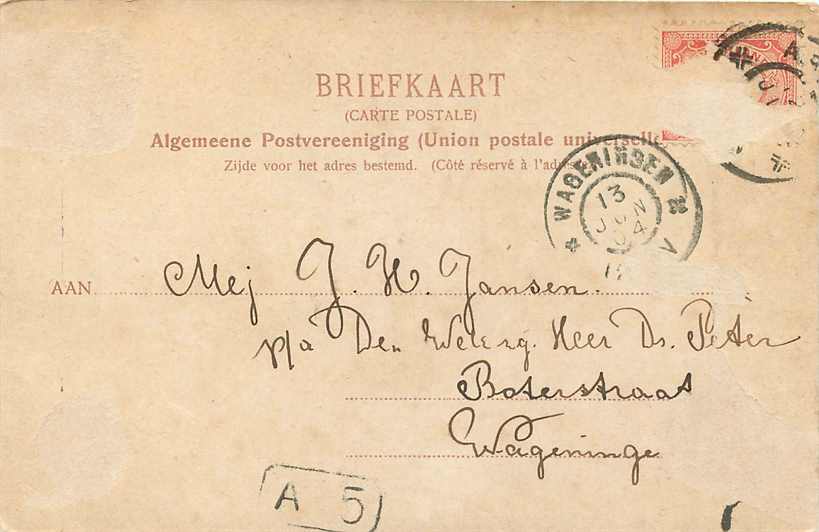 BRIEFKAART
(CARTE POSTALE)
Algemeene Postvereeniging (Union postale universelle
Zijde voor het adres bestemd. (Côté réservé à l'adres
WAGENINGEN
13
JUN
04
AAN Mej J. H. Jansen.
p/a Den Weledg. Heer Ds. Peter
Boterstraat
Wageninge
A 5